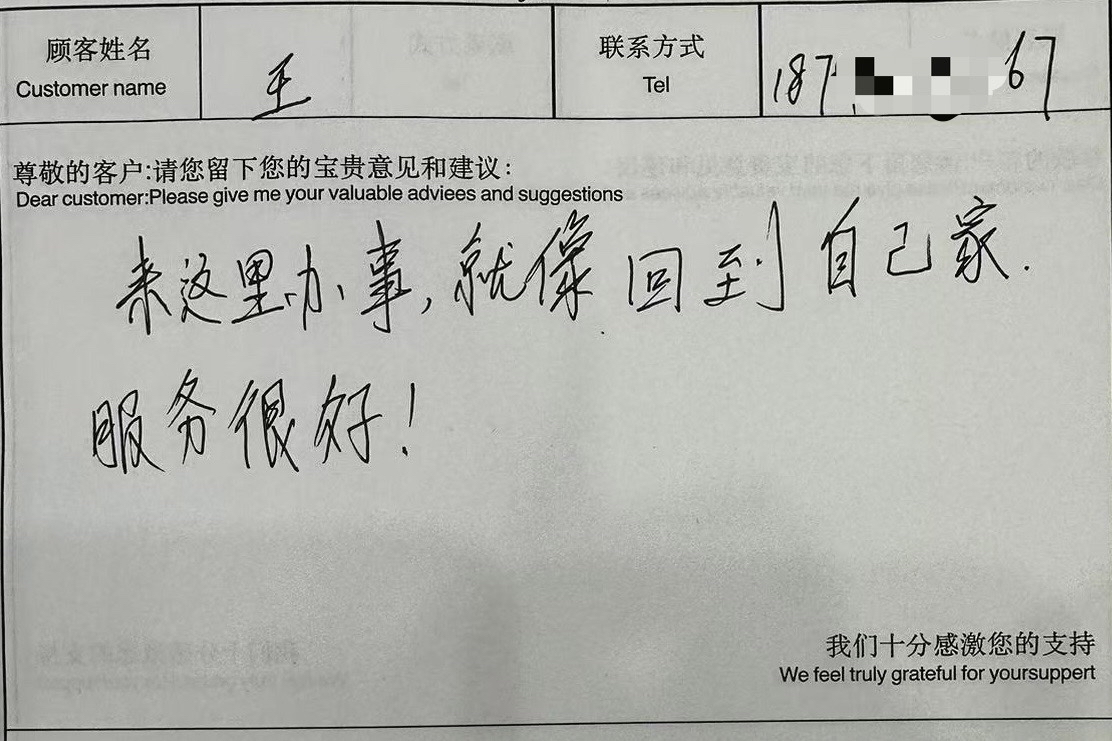 顾客姓名 王 联系方式 187 67
Customer name Tel
尊敬的客户:请您留下您的宝贵意见和建议:
Dear customer:Please give me your valuable adviees and suggestions
来这里办事,就像回到自己家.
服务很好!
我们十分感激您的支持
We feel truly grateful for yoursuppert